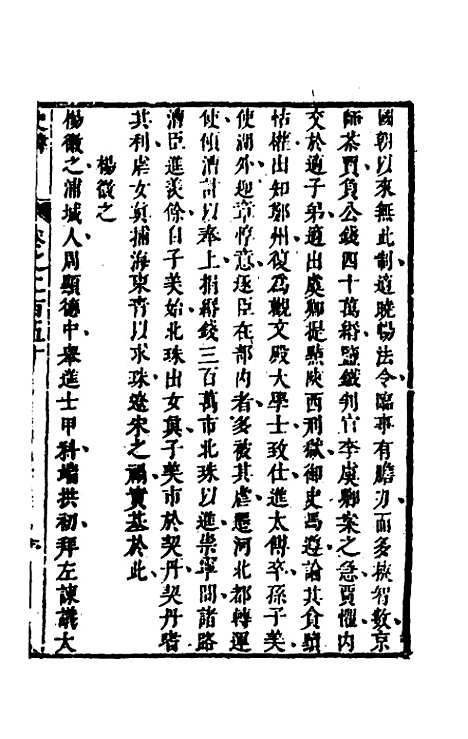 國朝以來無此制適曉暢法令臨事有膽力而多挾智數京
師茶賈負公錢四十萬緡鹽鐵判官李虞卿案之急賈懼內
交於適子弟適出虞卿提點陝西刑獄御史馮適論其貪驕
怙權出知鄭州復爲觀文殿大學士致仕進太傅卒孫子美
使湖外迎章惇意逐臣在部內者多被其虐爲河北都轉運
使傾漕計以奉上捐緡錢三百萬市北珠以進崇寧間諸路
漕臣進羨餘自子美始北珠出女真子美市於契丹契丹嗜
其利虐女真捕海東青以求珠遼宋之禍實基於此
楊徽之
楊徽之浦城人周顯德中舉進士甲科端拱初拜左諫議大
史緯
卷之二百五十